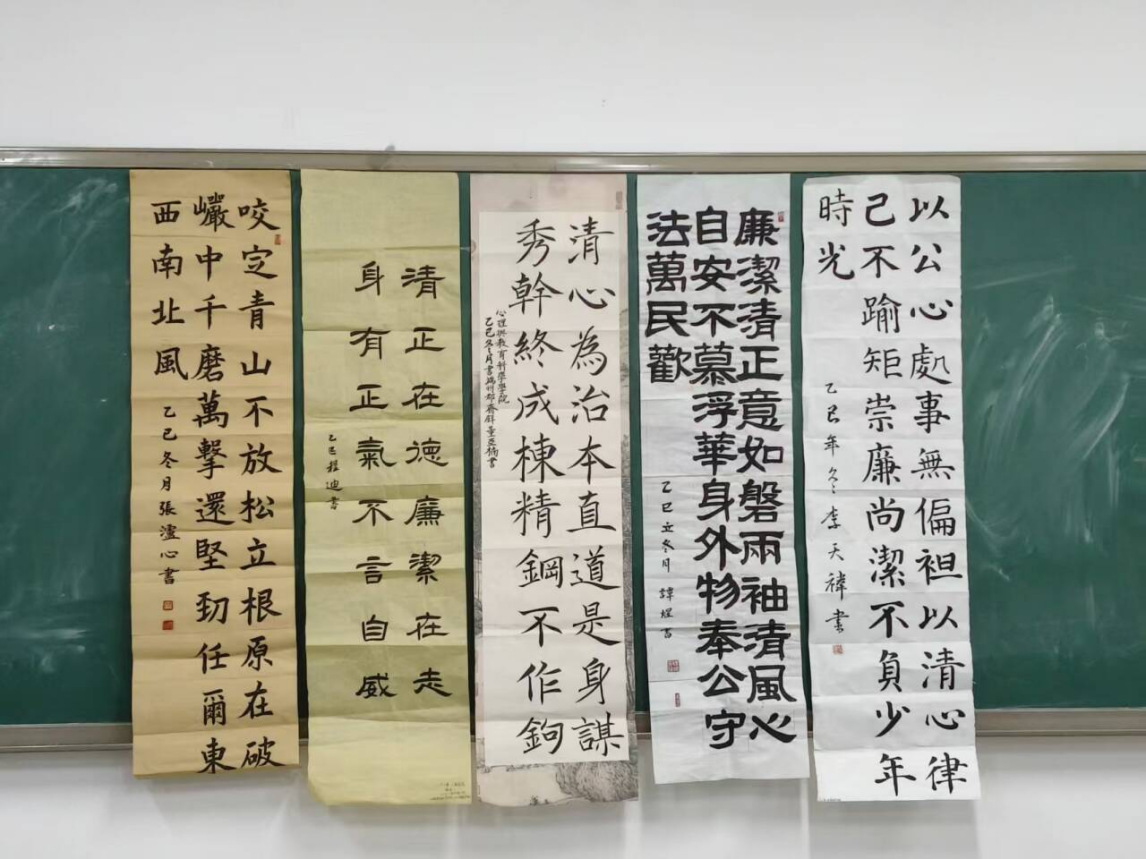 咬定青山不放松立根原在破
巗中千磨萬擊還堅勁任爾東
西南北風
乙巳冬月張瀘心書
清正在德廉潔在志
身有正氣不言自威
乙巳程迪書
清心為治本直道是身謀
秀幹終成棟精鋼不作鉤
心理與教育科學學院
乙巳冬月書端州郡齋壁
廉潔清正意如磐兩袖清風心
自安不慕浮華身外物奉公守
法萬民歡
乙巳立冬月
以公心處事無偏袒以清心律
己不踰矩崇廉尚潔不負少年
時光
乙巳年冬李天禕書